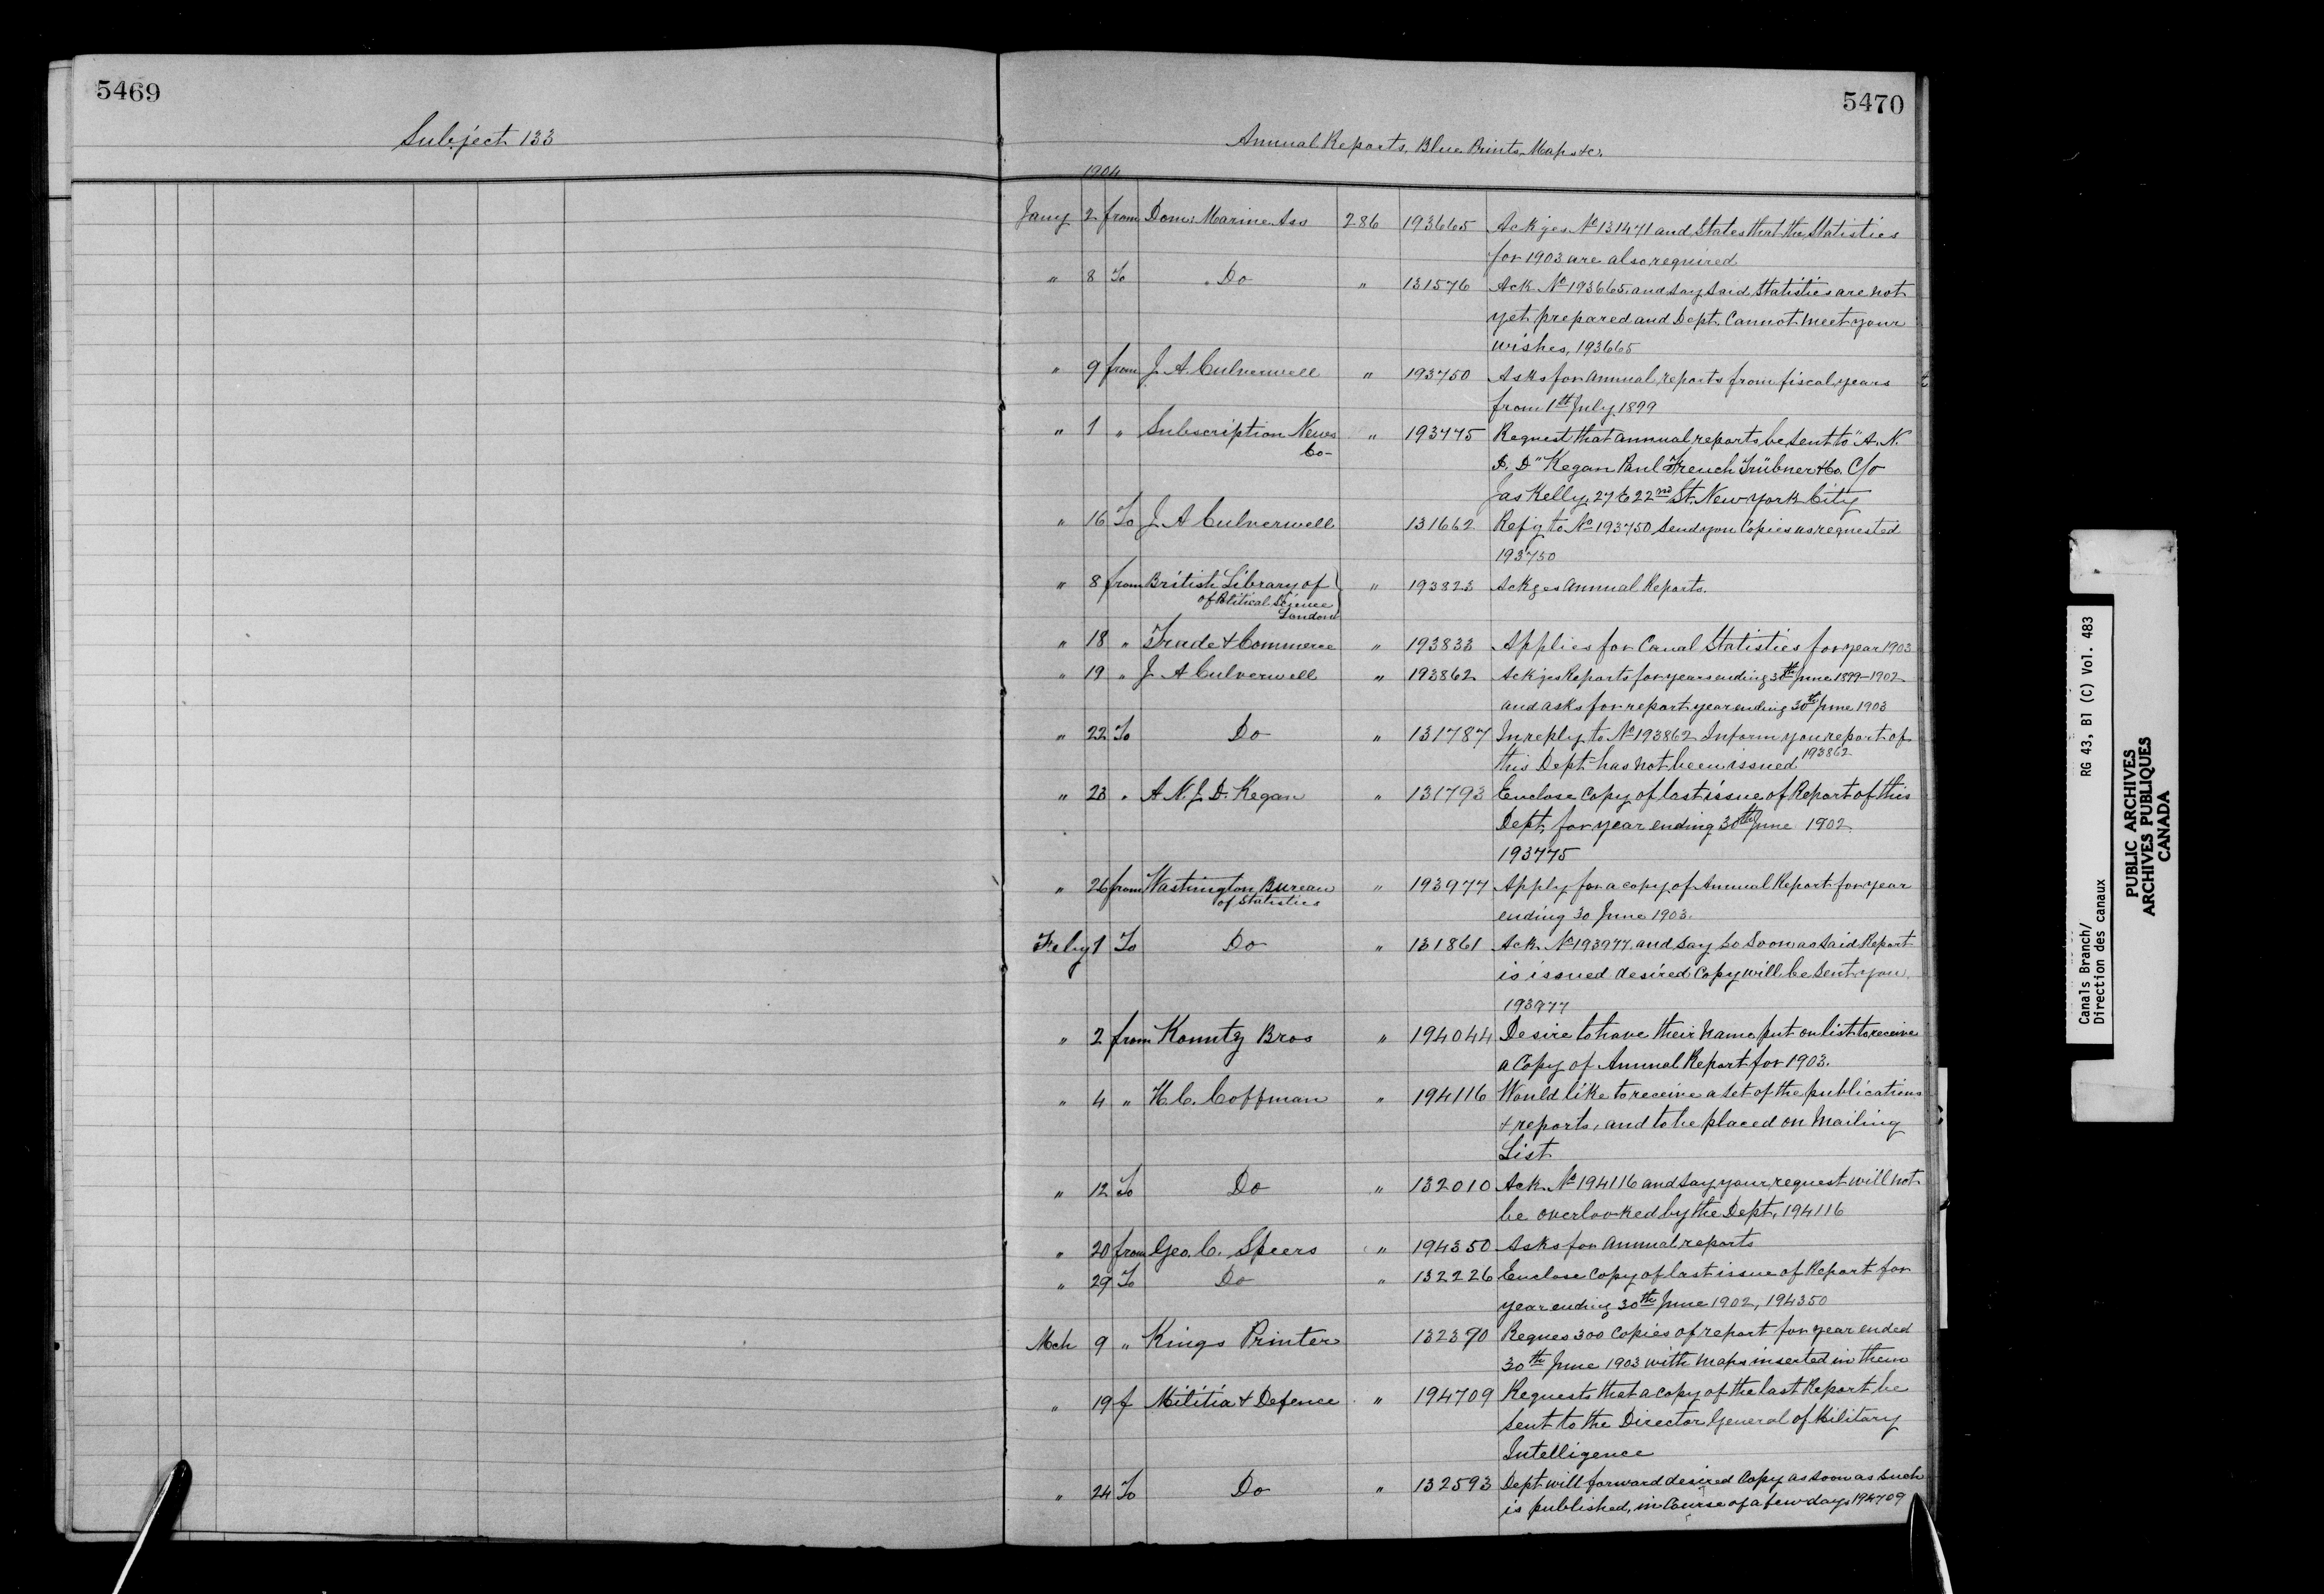 5469
Subject 133
5470
Annual Reports, Blue Prints, Maps &c.
1904
Jany 2 from Dom: Marine Ass 286 193665 Ackges No 131471 and States that the Statistics
for 1903 are also required
" 8 To Do " 131576 Ack No 193665, and say said Statistics are not
yet prepared and Dept. Cannot meet your
wishes, 193665
" 9 from J. A. Culverwell " 193750 Asks for annual reports from fiscal years
from 1st July 1899
" 1 " Subscription News " 193775 Request that annual reports be sent to "A. N.
Co-
J. D" Kegan Paul French Trübner & Co. C/o
Jas Kelly, 27 E 22nd St. New York City
" 16 To J. A Culverwell 131662 Refg to No 193750 Send you Copies as requested
193750
" 8 from British Library of " 193823 Ackges Annual Reports.
of Political Science
London
" 18 " Trade & Commerce " 193833 Applies for Canal Statistics for year 1903
" 19 " J A Culverwell " 193862 Ackges Reports for years ending 30th June 1899-1902
and asks for report year ending 30th June 1903
" 22 To Do " 131787 In reply to No 193862 Inform you report of
this Dept has not been issued 193862
" 23 " A. N. J. D. Kegan " 131793 Enclose Copy of last issue of Report of this
Dept, for year ending 30th June 1902
193775
" 26 from Washington Bureau " 193977 Apply for a copy of Annual Report for year
of Statistics
ending 30 June 1903.
Feby 1 To Do " 131861 Ack No 193977 and say so Soon as said Report
is issued desired Copy will be Sent you
193977
" 2 from Kountz Bros " 194044 Desire to have their Name put on list to receive
a Copy of Annual Report for 1903.
" 4 " H. C. Coffman " 194116 Would like to receive a set of the publications
& reports, and to be placed on Mailing
List
" 12 To Do " 132010 Ack No 194116 and say your request will not
be overlooked by the Dept, 194116
" 20 from Geo. C. Speers " 194350 Asks for Annual reports
" 29 To Do " 132226 Enclose Copy of last issue of Report for
year ending 30th June 1902, 194350
Mch 9 " Kings Printer 132390 Reques 300 Copies of report for year ended
30th June 1903 with Maps inserted in them
" 19 f Militia & Defence " 194709 Requests that a copy of the last Report be
Sent to the Director General of Military
Intelligence
" 24 To Do " 132593 Dept will forward desired Copy as soon as such
is published, in Course of a few days 194709
Canals Branch/ RG 43, B1 (C) Vol. 483
Direction des canaux
PUBLIC ARCHIVES
ARCHIVES PUBLIQUES
CANADA